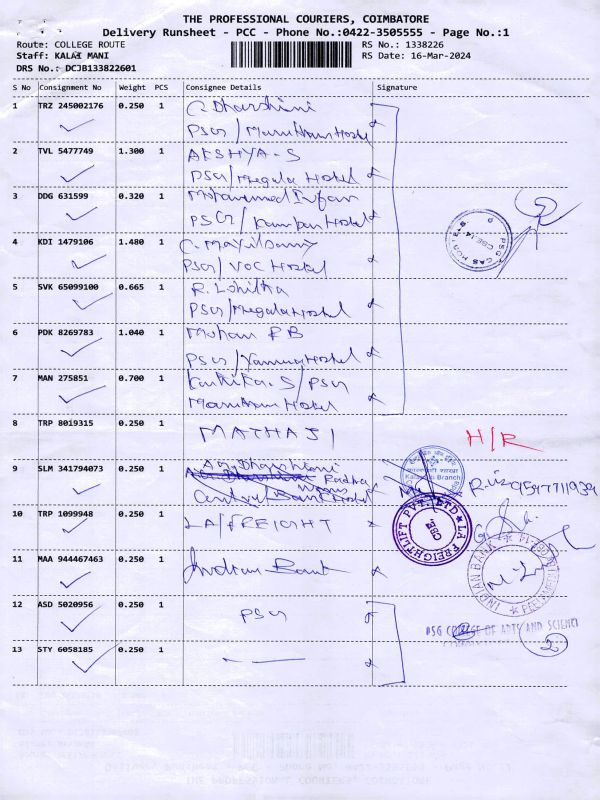 THE PROFESSIONAL COURIERS, COIMBATORE
Delivery Runsheet - PCC - Phone No.:0422-3505555 - Page No.:1
Route: COLLEGE ROUTE
RS No.: 1338226
Staff: KALAI MANI
RS Date: 16-Mar-2024
DRS No.: DCJB133822601
S No Consignment No Weight PCS Consignee Details Signature
1 TRZ 245002176 0.250 1 C. Dharshini
PSG/ Hostel
2 TVL 5477749 1.300 1 AKSHYA-S
PSG/Megala Hostel
3 DDG 631599 0.320 1 Mohammed Irfan
PSG/ Hostel
4 KDI 1479106 1.480 1 C. Mayilsamy
PSG/ VOC Hostel
5 SVK 65099100 0.665 1 R. Lohitha
PSG/Megala Hostel
6 PDK 8269783 1.040 1 Mohan R B
PSG/Yamuna Hostel
7 MAN 275851 0.700 1 Karthika.S/PSG
Hostel
8 TRP 8019315 0.250 1 MATHAJI
H/R
9 SLM 341794073 0.250 1 Dharshini
Radha
Hostel
10 TRP 1099948 0.250 1 LA/FREIGHT
LA FREIGHTLIFT PVT. LTD
CBE.
11 MAA 944467463 0.250 1 Indian Bank
INDIAN BANK
12 ASD 5020956 0.250 1 PSG
PSG COLLEGE OF ARTS AND SCIENCE
2
13 STY 6058185 0.250 1